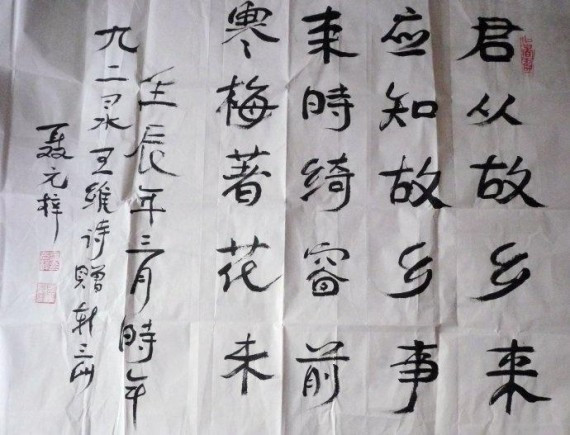 君从故乡来
应知故乡事
来時绮窗前
寒梅著花未
壬辰年三月時年
九二录王維诗赠
聂元梓